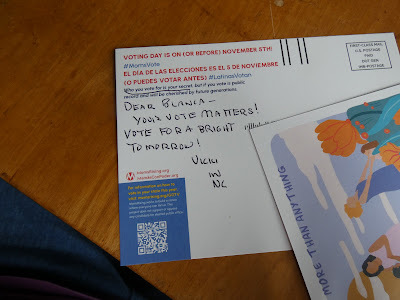 VOTING DAY IS ON (OR BEFORE) NOVEMBER 5TH!
#MomsVote
EL DÍA DE LAS ELECCIONES ES EL 5 DE NOVIEMBRE
(O PUEDES VOTAR ANTES) #LatinasVotan
Who you vote for is your secret, but if you vote is public
record and will be cherished by future generations.
FIRST-CLASS MAIL
U.S. POSTAGE
PAID
DEAR BLANCA—
YOUR VOTE MATTERS!
VOTE FOR A BRIGHT
TOMORROW!
VICKI
IN
NC
momsrising.org
mamásconpoder.org
For information on how to
MORE THAN ANYTHING